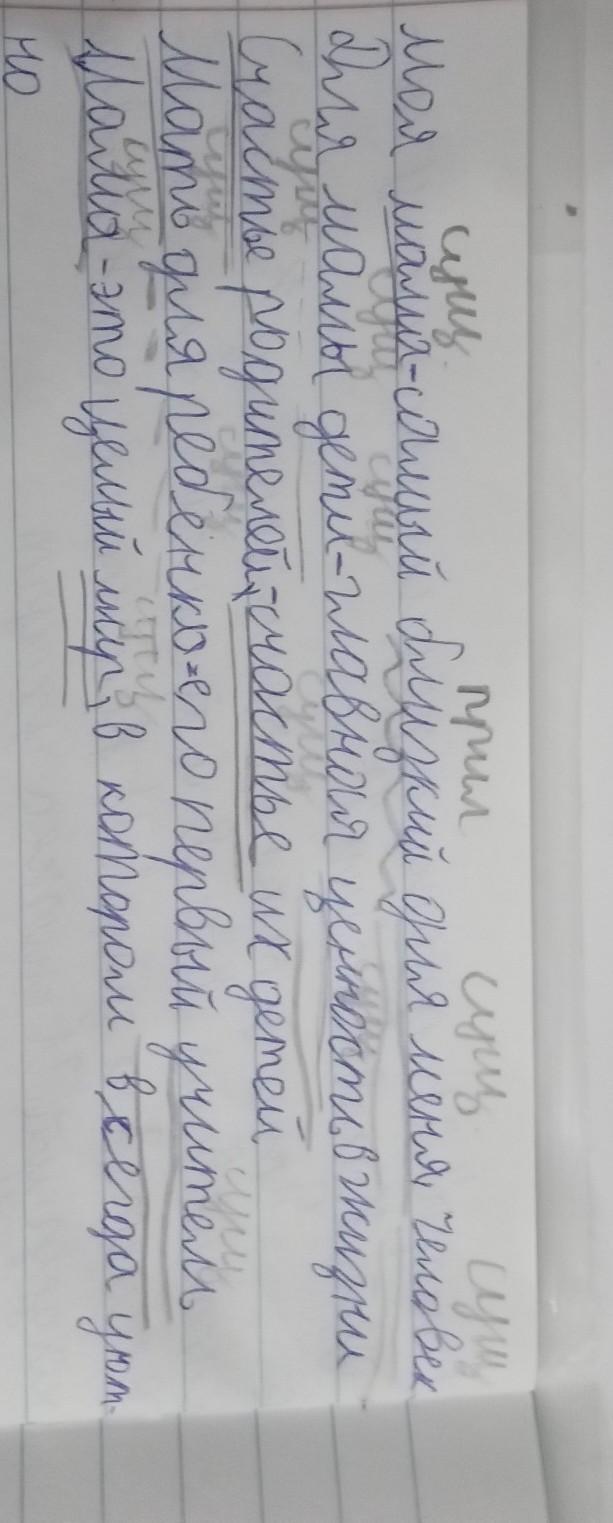 сущ прил сущ сущ
Моя мама-самый близкий для меня, человек
сущ сущ сущ
Для мамы дети-главная ценность в жизни
сущ сущ
Счастье родителей,-счастье их детей
сущ сущ сущ
Мать для ребёнка=его первый учитель
сущ сущ
Мама-это целый мир, в котором всегда уют-
но